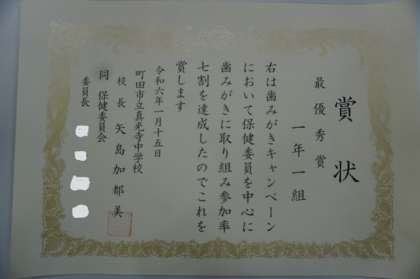 賞状
最優秀賞
一年一組
右は歯みがきキャンペーン
において保健委員を中心に
歯みがきに取り組み参加率
七割を達成したのでこれを
賞します
令和六年一月十五日
町田市立真光寺中学校
校長 矢島加都美
同 保健委員会
委員長